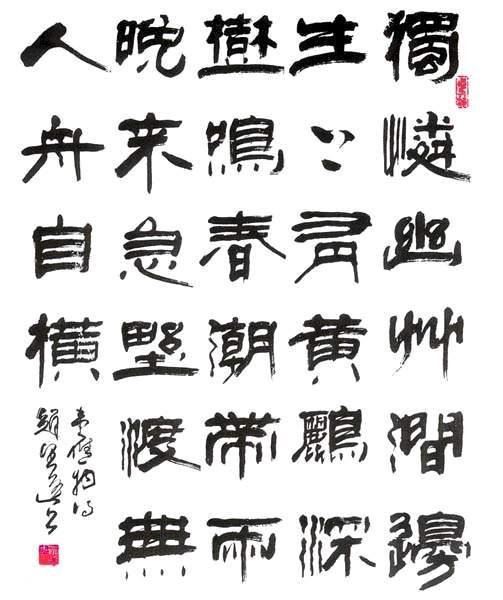 獨憐幽艸澗邊
生上有黃鸝深
樹鳴春潮帶雨
晚来急野渡無
人舟自橫
韋應物詩
趙望進书